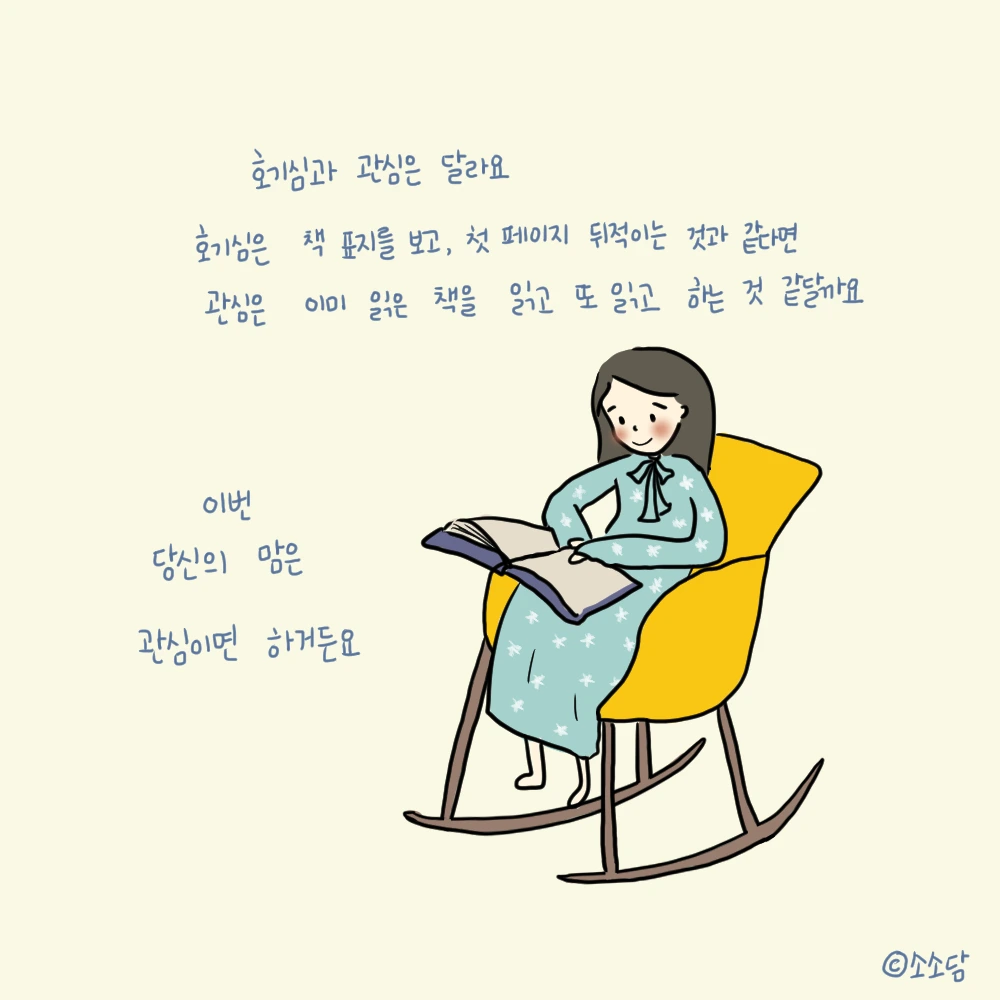 호기심과 관심은 달라요
호기심은 책 표지를 보고, 첫 페이지 뒤적이는 것과 같다면
관심은 이미 읽은 책을 읽고 또 읽고 하는 것 같달까요
이번
당신의 맘은
관심이면 하거든요
©소소담